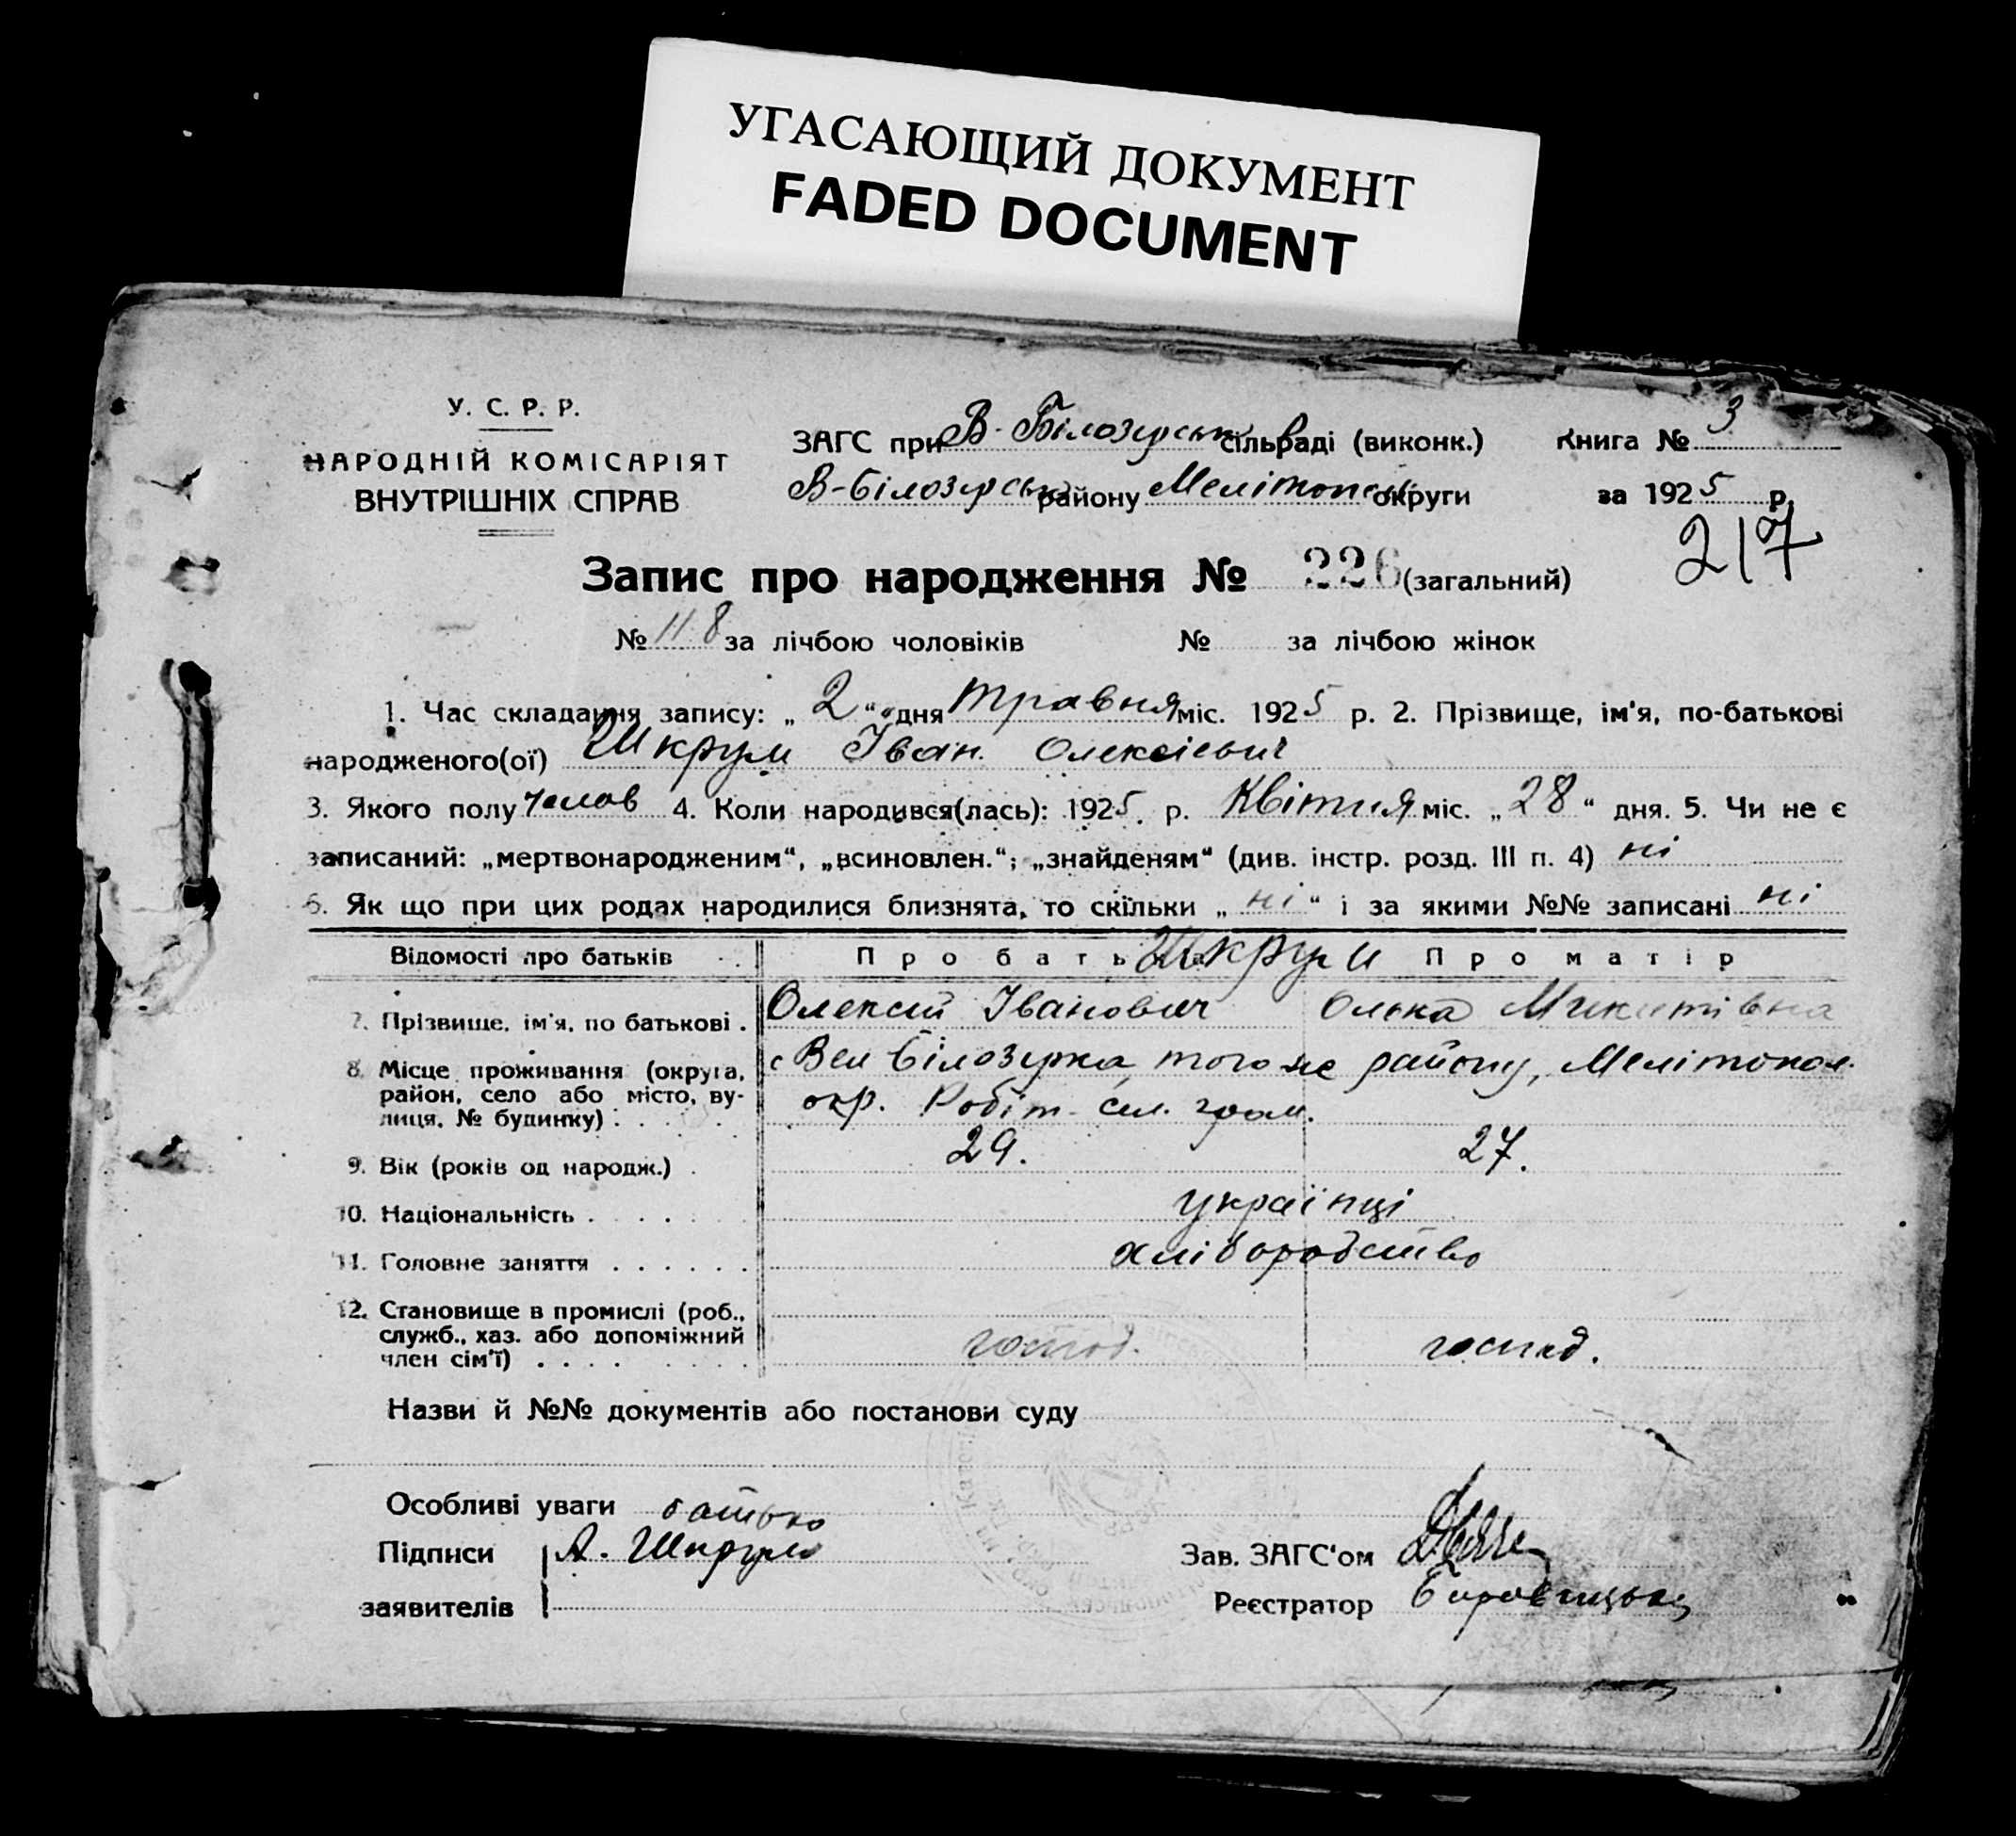 УГАСАЮЩИЙ ДОКУМЕНТ
FADED DOCUMENT
У. С. Р. Р.
НАРОДНІЙ КОМІСАРІЯТ
ВНУТРІШНІХ СПРАВ
ЗАГС при В-Білозерськ сільраді (виконк.) Книга № 3
В-Білозерськ району Мелітопськ округи за 1925 р.
217
Запис про народження № 226 (загальний)
№ 118 за лічбою чоловіків № за лічбою жінок
1. Час складання запису: „ 2 “ дня травня міс. 1925 р. 2. Прізвище, ім'я, по-батькові
народженого(ої) Шкрум Іван Олексієвич
3. Якого полу челов 4. Коли народився(лась): 1925 р. Квітня міс. „ 28 “ дня. 5. Чи не є
записаний: „мертвонародженим“, „всиновлен.“; „знайденям“ (див. інстр. розд. III п. 4) ні
6. Як що при цих родах народилися близнята, то скільки „ ні “ і за якими №№ записані ні
Відомості про батьків Про батька Шкрум Про матір
7. Прізвище, ім'я, по батькові . Олексій Іванович Олька Микитівна
8. Місце проживання (округа, с Вел Білозерка, того же району, Мелітопол.
район, село або місто, ву- окр. Робіт. сел. гром.
лиця, № будинку) . . . .
9. Вік (років од народж.) . 29. 27.
10. Національність . . . . . українці
11. Головне заняття . . . . . . хліборобство
12. Становище в промислі (роб.,
служб., хаз. або допоміжний
член сім'ї) . . . . господ. господ.
Назви й №№ документів або постанови суду
Особливі уваги батько
Підписи А. Шкрум Зав. ЗАГС'ом
заявителів Реєстратор